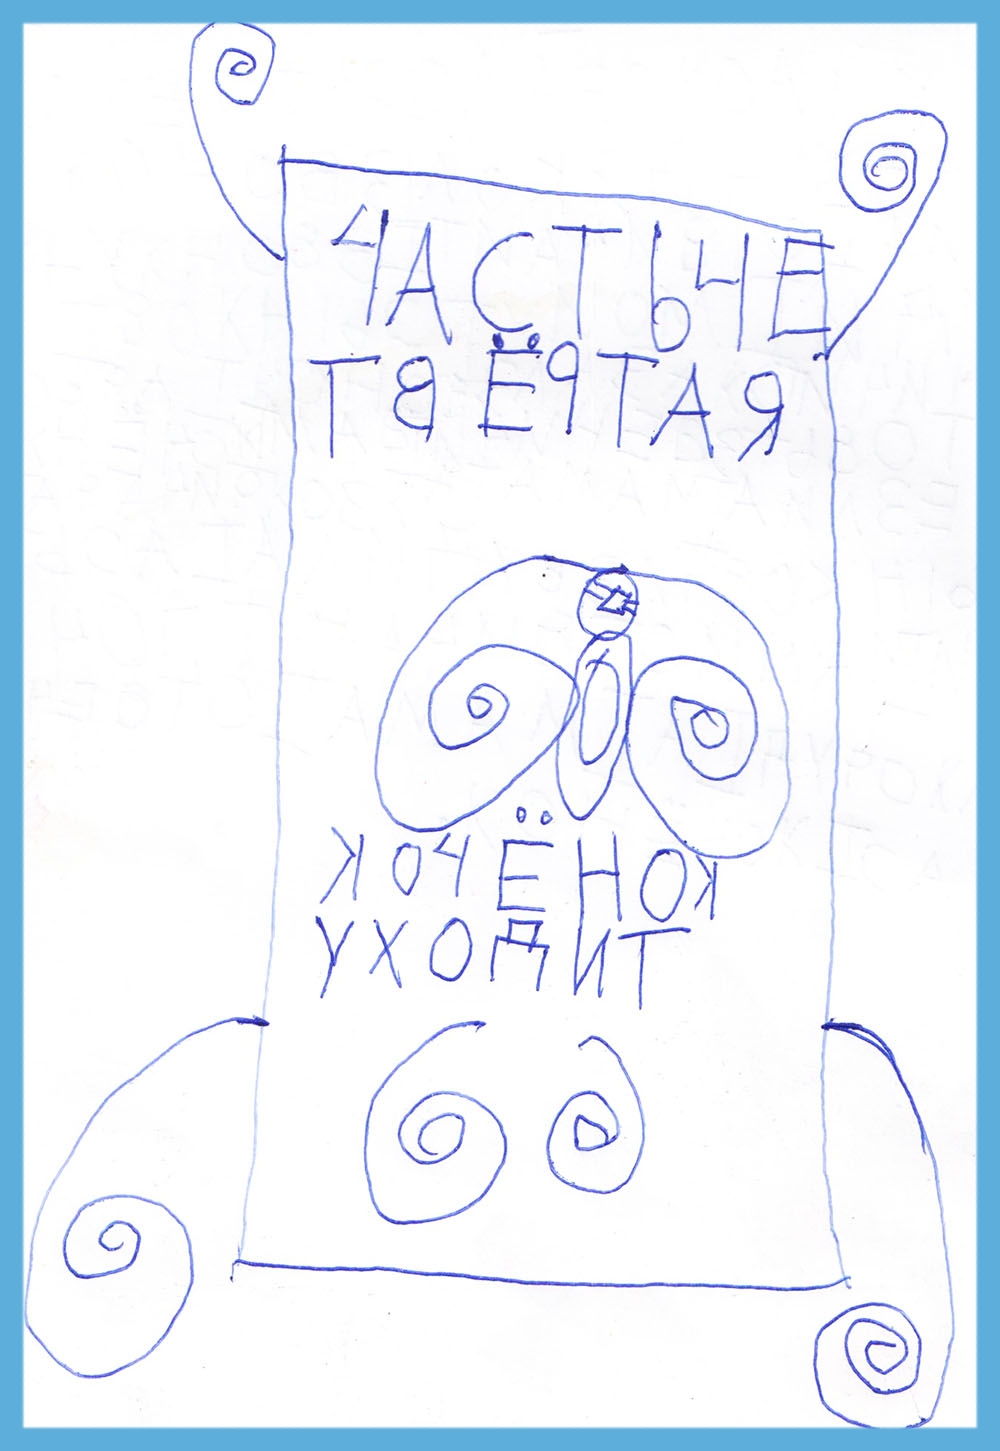 ЧАСТЬЧЕ
ТВЁРТАЯ
КОЧЁНОК
УХОДИТ